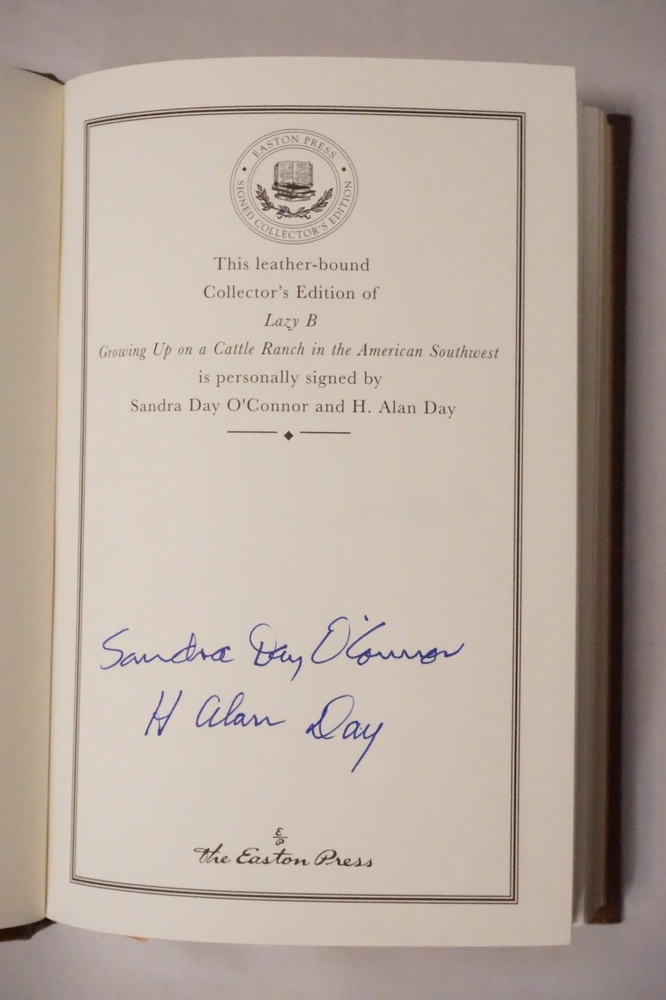 EASTON PRESS
SIGNED COLLECTOR'S EDITION
This leather-bound
Collector's Edition of
Lazy B
Growing Up on a Cattle Ranch in the American Southwest
is personally signed by
Sandra Day O'Connor and H. Alan Day
Sandra Day O'Connor
H Alan Day
E
P
The Easton Press